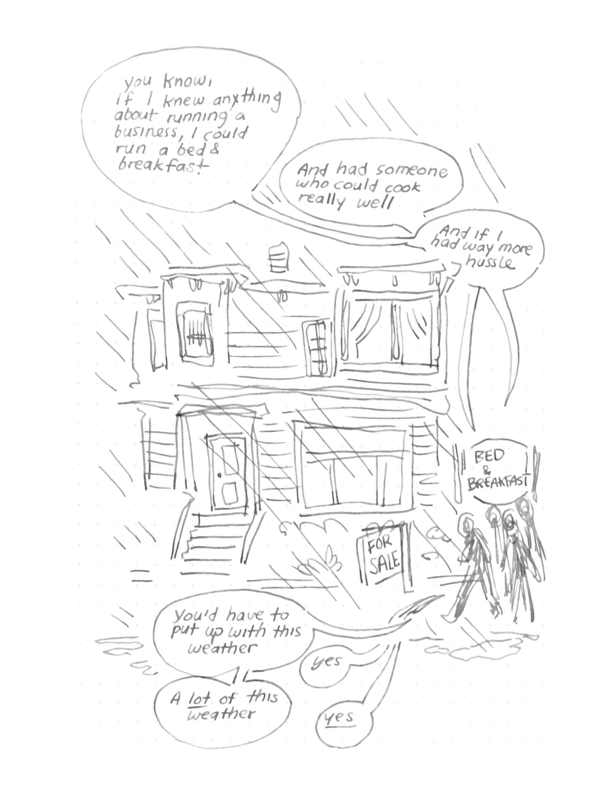 you know,
if I knew anything
about running a
business, I could
run a bed &
breakfast
And had someone
who could cook
really well
And if I
had way more
hussle
BED
&
BREAKFAST
FOR
SALE
You'd have to
put up with this
weather
yes
A lot of this
weather
yes